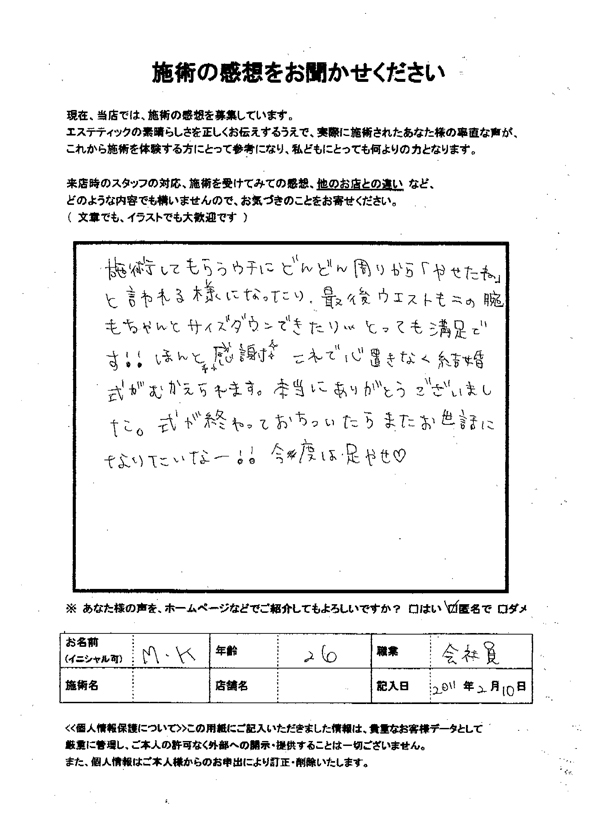 施術の感想をお聞かせください
現在、当店では、施術の感想を募集しています。
エステティックの素晴らしさを正しくお伝えするうえで、実際に施術されたあなた様の率直な声が、
これから施術を体験する方にとって参考になり、私どもにとっても何よりの力となります。
来店時のスタッフの対応、施術を受けてみての感想、他のお店との違い など、
どのような内容でも構いませんので、お気づきのことをお寄せください。
( 文章でも、イラストでも大歓迎です )
施術してもらうウチに どんどん 周りから「やせたね」
と 言われる 様に なったり、最後 ウエストも 二の腕
も ちゃんと サイズダウン できたり… とっても 満足で
す!! ほんと 感謝 これで 心置きなく 結婚
式が むかえられます。本当に ありがとう ございまし
た。式が 終わって おちついたら また お世話に
なりたいなー!! 今度は 足やせ♡
※ あなた様の声を、ホームページなどでご紹介してもよろしいですか? □はい ☑匿名で □ダメ
お名前 (イニシャル可) M・K 年齢 26 職業 会社員
施術名 店舗名 記入日 2011 年 2 月 10 日
<<個人情報保護について>>この用紙にご記入いただきました情報は、貴重なお客様データとして
厳重に管理し、ご本人の許可なく外部への開示・提供することは一切ございません。
また、個人情報はご本人様からのお申出により訂正・削除いたします。